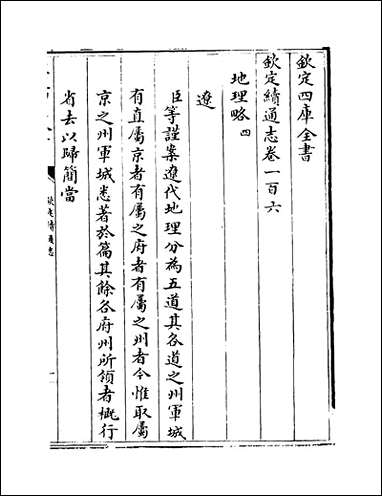 欽定四庫全書
欽定續通志卷一百六
地理略四
遼
臣等謹案遼代地理分為五道其各道之州軍城
有直屬京者有屬之府者有屬之州者今惟取屬
京之州軍城悉著於篇其餘各府州所領者概行
省去以歸簡當
欽定續通志
一